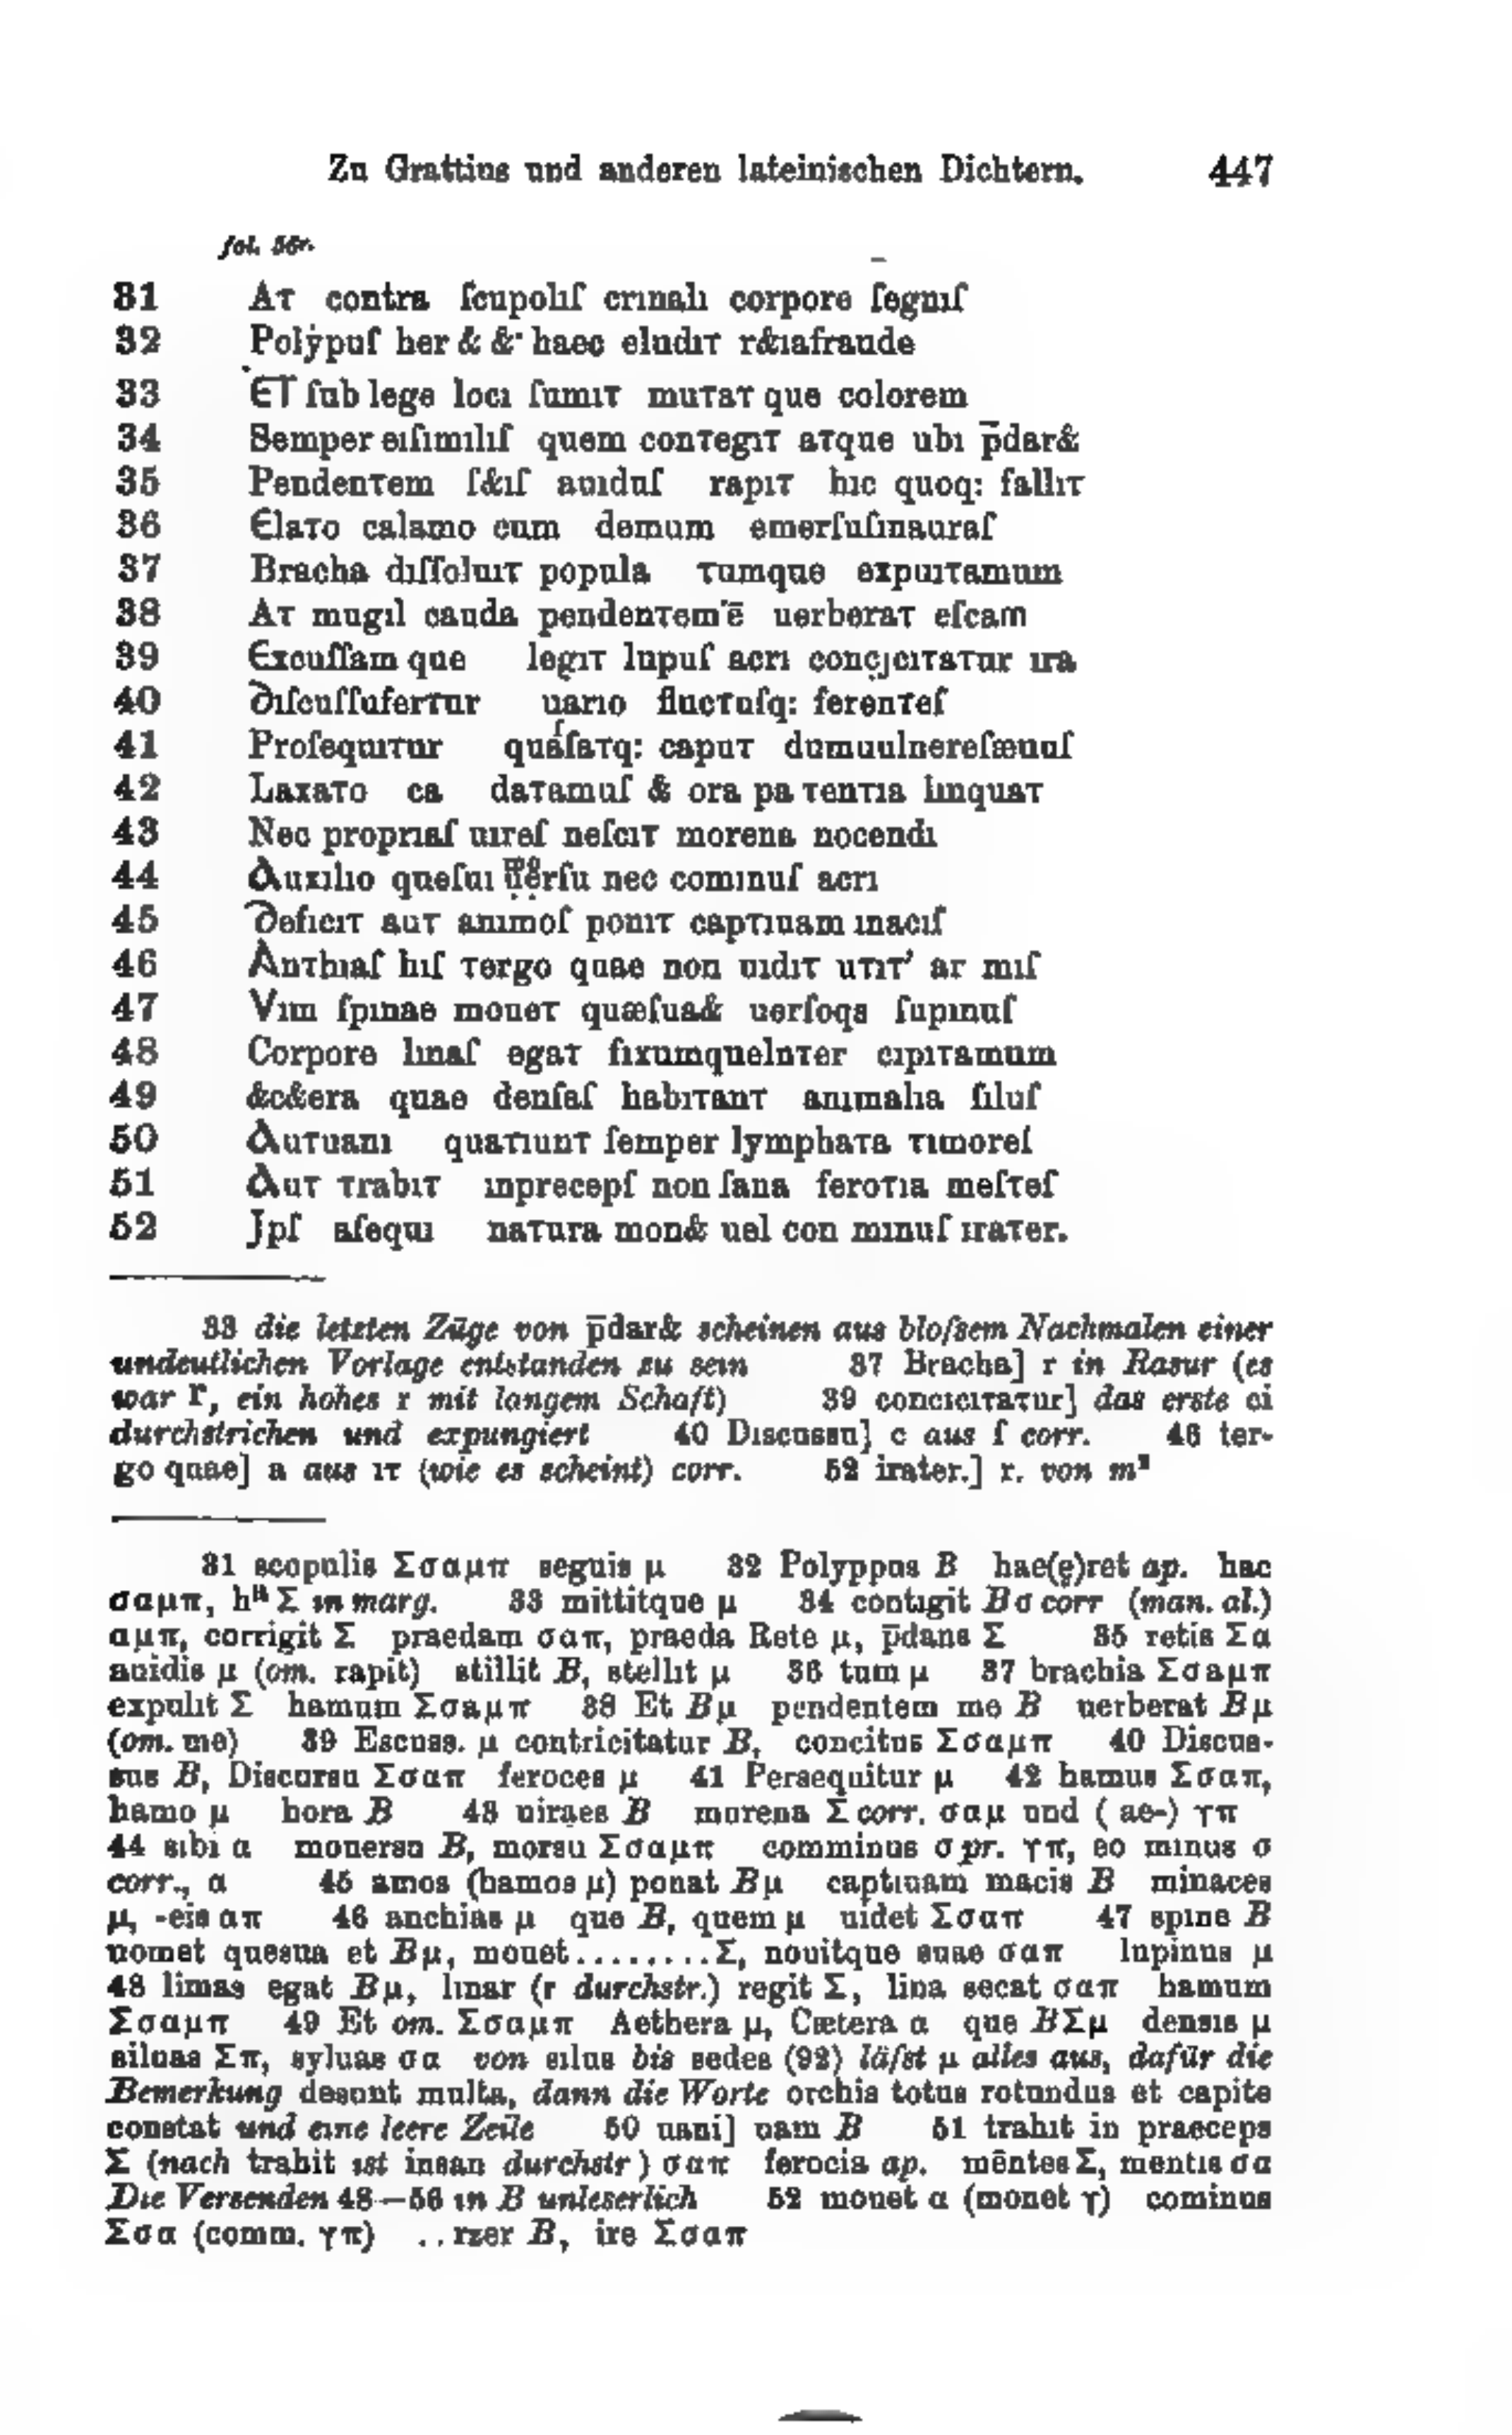 Zu Grattius und anderen lateinischen Dichtern. 447
fol. 56r.
31 Aт contra ſcupolıſ crınalı corpore ſegnıſ
32 Polẏpuſ her & &· haec eludıт r&ıafraude
33 ЄT ſub lege locı ſumıт muтaт que colorem
34 Semper eıſımılıſ quem conтegıт aтque ubı p̄dar&
35 Pendenтem ſ&ıſ auıduſ rapıт hıc quoq: fallıт
36 Єlaтo calamo cum demum emerſuſınauraſ
37 Bracha dıſſoluıт popula тumque expuıтamum
38 Aт mugıl cauda pendenтem'ē uerberaт eſcam
39 Єxcuſſam que legıт lupuſ acrı concȷcıтaтur ıra
40 ∂ıſcuſſuferтur uarıo flucтuſq: ferenтeſ
41 Proſequıтur quaſſaтq: capuт dumuulnereſæuuſ
42 Laxaтo ca daтamuſ & ora pa тenтıa lınquaт
43 Nec proprıaſ uıreſ neſcıт morena nocendı
44 Auxılıo queſuı ụẹrſu nec comınuſ acrı
45 ∂efıcıт auт anımoſ ponıт capтıuam ınacıſ
46 Anтhıaſ hıſ тergo quae non uıdıт uтıт' ar mıſ
47 Vım ſpınae moueт quæſua& uerſoqa ſupınuſ
48 Corpore lınaſ egaт fıxumquelnтer cıpıтamum
49 &c&era quae denſaſ habıтanт anımalıa ſıluſ
50 Auтuanı quaтıunт ſemper lymphaтa тımoreſ
51 Auт тrabıт ınprecepſ non ſana feroтıa meſтeſ
52 Jpſ aſequı naтura mon& uel con mınuſ ıraтer.
33 die letzten Züge von p̄dar& scheinen aus bloſsem Nachmalen einer
undeutlichen Vorlage entstanden zu sein 37 Bracha] r in Rasur (es
war r, ein hohes r mit langem Schaft) 39 concıcıтaтur] das erste ci
durchstrichen und expungiert 40 Dıscussu] c aus ſ corr. 46 ter-
go quae] a aus ıт (wie es scheint) corr. 52 irater.] r. von m²
31 scopulis Σσαμπ seguis μ 32 Polyppos B hae(ę)ret ap. hac
σαμπ, hᵃ Σ in marg. 33 mittitque μ 34 contigit Bσ corr (man. al.)
αμπ, corrigit Σ praedam σαπ, praeda Rete μ, p̄dans Σ 35 retis Σα
auidis μ (om. rapit) stillit B, stellit μ 36 tum μ 37 brachia Σσαμπ
expulit Σ hamum Σσαμπ 38 Et Bμ pendentem me B uerberat Bμ
(om. me) 39 Escuss. μ contricitatur B, concitus Σσαμπ 40 Discus-
sus B, Discursu Σσαπ feroces μ 41 Persequitur μ 42 hamus Σσαπ,
hamo μ hora B 43 uiraes B murena Σ corr. σαμ und ( ae-) γπ
44 sibi α mouersu B, morsu Σσαμπ comminus σ pr. γπ, eo minus σ
corr., α 45 amos (hamos μ) ponat Bμ captiuam macis B minaces
μ, -eis απ 46 anchias μ que B, quem μ uidet Σσαπ 47 spine B
uomet quesua et Bμ, mouet........Σ, nouitque suae σαπ lupinus μ
48 limas egat Bμ, linar (r durchstr.) regit Σ, lina secat σαπ hamum
Σσαμπ 49 Et om. Σσαμπ Aethera μ, Cætera α que BΣμ densis μ
siluas Σπ, syluas σα von silus bis sedes (92) läſst μ alles aus, dafür die
Bemerkung desunt multa, dann die Worte orchis totus rotundus et capite
constat und eine leere Zeile 50 uani] uam B 51 trahit in praeceps
Σ (nach trahit ist insan durchstr) σαπ ferocia ap. mêntes Σ, mentis σα
Die Versenden 48–56 in B unleserlich 52 mouet α (monet γ) cominus
Σσα (comm. γπ) ..rzer B, ire Σσαπ